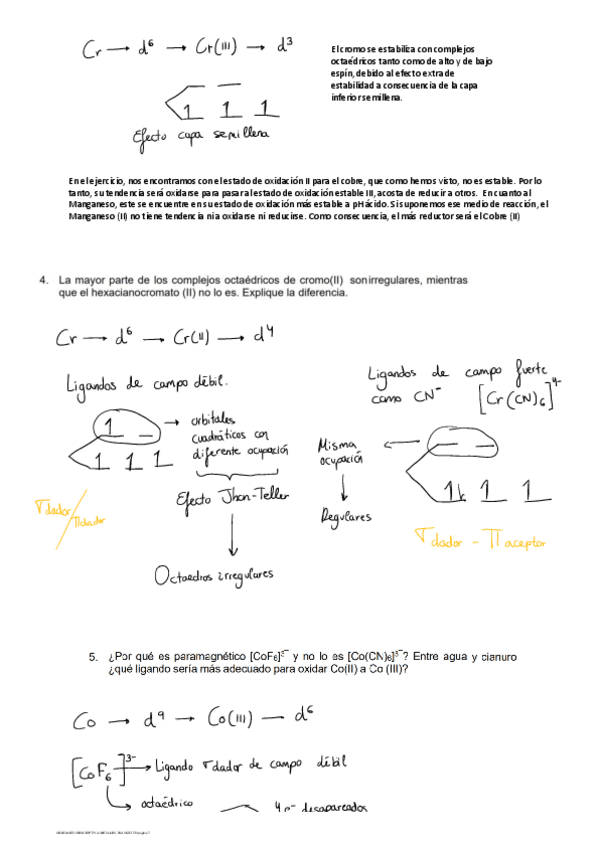 Cr → d⁶ → Cr(III) → d³
El cromo se estabiliza con complejos
octaédricos tanto como de alto y de bajo
espín, debido al efecto extra de
estabilidad a consecuencia de la capa
inferior semillena.
1 1 1
Efecto capa semillena
En el ejercicio, nos encontramos con el estado de oxidación II para el cobre, que como hemos visto, no es estable. Por lo
tanto, su tendencia será oxidarse para pasar al estado de oxidación estable III, acosta de reducir a otros. En cuanto al
Manganeso, este se encuentre en su estado de oxidación más estable a pH ácido. Si suponemos ese medio de reacción, el
Manganeso (II) no tiene tendencia ni a oxidarse ni reducirse. Como consecuencia, el más reductor será el Cobre (II)
4. La mayor parte de los complejos octaédricos de cromo(II) son irregulares, mientras
que el hexacianocromato (II) no lo es. Explique la diferencia.
Cr → d⁶ → Cr(II) → d⁴
Ligandos de campo débil.
1 _
1 1 1
→ orbitales
cuadráticos con
diferente ocupación
Efecto Jhon-Teller
Octaedros irregulares
σdador/πdador
Ligandos de campo fuerte
como CN⁻ [Cr(CN)₆]⁴⁻
Misma
ocupación
Regulares
1⇂ 1 1
σdador - π aceptor
5. ¿Por qué es paramagnético [CoF₆]³⁻ y no lo es [Co(CN)₆]³⁻? Entre agua y cianuro
¿qué ligando sería más adecuado para oxidar Co(II) a Co (III)?
Co → d⁹ → Co(III) → d⁶
[CoF₆]³⁻ → Ligando σdador de campo débil
octaédrico 4 e⁻ desapareados